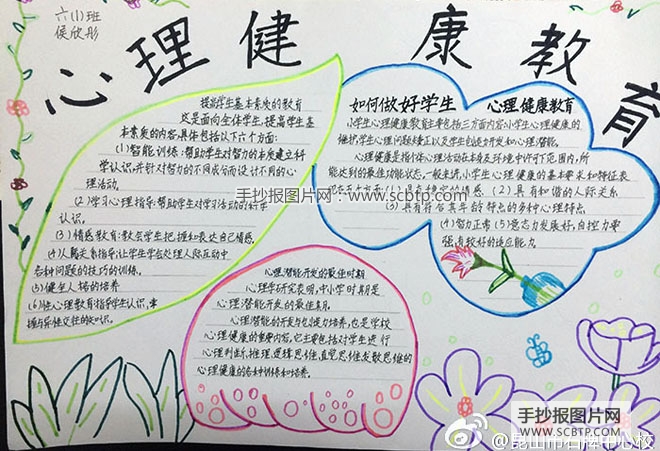 六(1)班
侯欣彤
心理健康教育
提高学生基本素质的教育
这是面向全体学生,提高学生基
本素质的内容,具体包括以下六个方面:
(1)智能训练:帮助学生对智力的本质建立科
学认识,并针对智力的不同成分而设计不同的心
理活动.
(2)学习心理指导:帮助学生对学习活动的科学
认识.
(3)情感教育:教会学生把握和表达自己情感.
(4)人际关系指导:让学生学会处理人际互动中
各种问题的技巧的训练.
(5)健全人格的培养
(6)性心理教育:指导学生认识,掌
握与异性交往的知识.
如何做好学生 心理健康教育
小学生心理健康教育主要包括三方面内容:小学生心理健康的
维护,学生心理问题矫正以及学生创造力开发如心理潜能.
心理健康是指个体心理活动在本身及环境中许可下范围内,所
能达到的最佳功能状态,一般来讲,小学生心理健康的基本要求和特征表
(1)具有稳定的情感 (2)具有和谐的人际关系
(3)具有符合其年龄特点的多种心理特点
(4)智力正常(5)意志力发展好,自控力要
强,有较好的适应能力
手抄报图片网:www.scbtp.com
心理潜能开发的最佳时期
心理学研究表明,中小学时期是
心理潜能开发的最佳期.
心理潜能的开发与创造力培养,也是学校
心理健康的重要内容,它主要包括对学生进行
心理判断,推理,逻辑思维,直觉思维,发散思维的
心理健康的各种训练和培养.
手抄报图片网
www.SCBTP.com
@昆山市石牌中心校